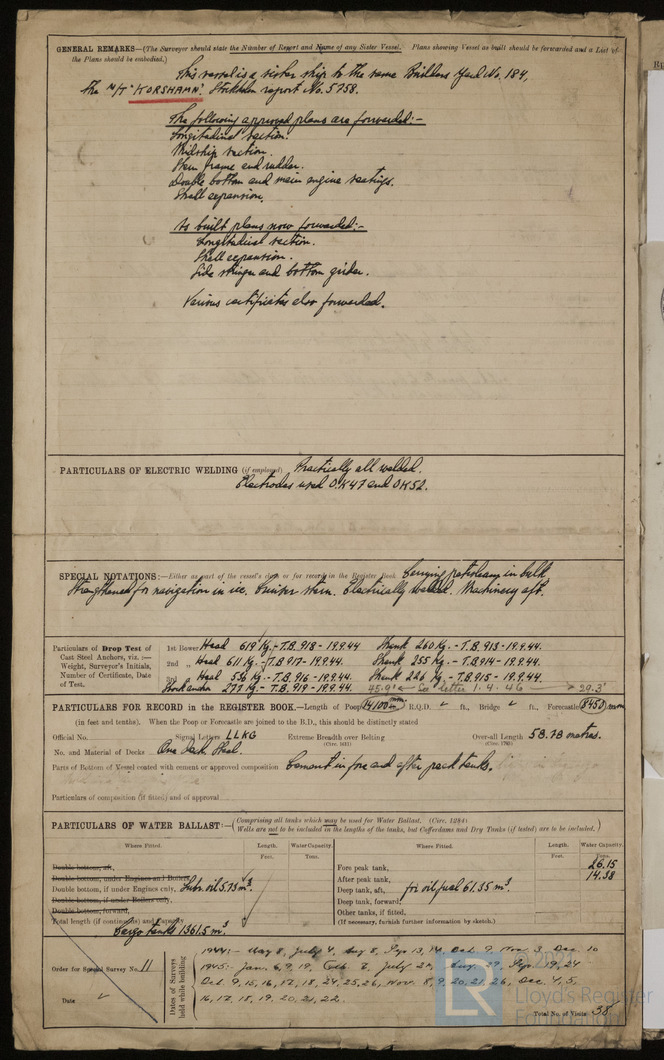 GENERAL REMARKS—(The Surveyor should state the Number of Report and Name of any Sister Vessel. Plans showing Vessel as built should be forwarded and a List of
the Plans should be embodied.)
This vessel is a sister ship to the same Builders Yard No. 184,
The M/T "KORSHAMN". Stockholm report No. 5758.
The following approved plans are forwarded:-
Longitudinal section.
Midship section.
Stern frame and rudder.
Double bottom and main engine seatings.
Shell expansion.
As built plans now forwarded:-
Longitudinal section.
Shell expansion.
Side stringer and bottom girder.
Various certificates also forwarded.
PARTICULARS OF ELECTRIC WELDING (if employed) Practically all welded.
Electrodes used OK47 and OK52.
SPECIAL NOTATIONS:—Either as part of the vessel's class or for record in the Register Book. Carrying petroleum in bulk
Strengthened for navigation in ice. Cruiser stern. Electrically welded. Machinery aft.
Particulars of Drop Test of
Cast Steel Anchors, viz.:—
Weight, Surveyor's Initials,
Number of Certificate, Date
of Test.
1st Bower Head 619 Kg. - T.B. 918 - 19.9.44. Shank 260 Kg. - T.B. 913 - 19.9.44.
2nd " Head 611 Kg. - T.B. 917 - 19.9.44. Shank 255 Kg. - T.B. 914 - 19.9.44.
3rd Head 556 Kg. - T.B. 916 - 19.9.44. Shank 226 Kg. - T.B. 915 - 19.9.44.
Stock anchor 277 Kg. - T.B. 919 - 19.9.44. 45.9' letter 1.4.46 29.3'
PARTICULARS FOR RECORD in the REGISTER BOOK.—Length of Poop 14100 m R.Q.D. ft., Bridge ft., Forecastle 8450 mm
(in feet and tenths). When the Poop or Forecastle are joined to the B.D., this should be distinctly stated
Official No. Signal Letters LLKG Extreme Breadth over Belting Over-all Length 58.78 metres.
(Circ. 1611) (Circ. 1703)
No. and Material of Decks One Deck Steel.
Parts of Bottom of Vessel coated with cement or approved composition Cement in fore and after peak tanks.
Particulars of composition (if fitted) and of approval
PARTICULARS OF WATER BALLAST:—(Comprising all tanks which may be used for Water Ballast. (Circ. 1284)
Wells are not to be included in the lengths of the tanks, but Cofferdams and Dry Tanks (if tested) are to be included.)
Where Fitted. Length. Water Capacity. Where Fitted. Length. Water Capacity.
Feet. Tons. Feet. Tons.
Double bottom, aft,
Double bottom, under Engines and Boilers
Double bottom, if under Engines only, Lubr. oil 5.73 m³.
Double bottom, if under Boilers only,
Double bottom, forward,
Total length (if continuous) and Capacity
Cargo tanks 1361.5 m³.
Fore peak tank, 26.15
After peak tank, 14.38
Deep tank, aft, for oil fuel 61.35 m³.
Deep tank, forward,
Other tanks, if fitted.
(If necessary, furnish further information by sketch.)
Order for Special Survey No. 11
Date
Dates of Surveys
held while building
1944:- May 8, July 4, Aug 8, Sep 13, 14, Oct. 9, Nov. 3, Dec. 10
1945:- Jan. 6, 9, 19, Feb. 2, July 27, Aug. 27, Sep. 19, 24
Oct. 9, 15, 16, 17, 18, 24, 25, 26, Nov. 8, 9, 20, 21, 26, Dec. 4, 5,
16, 17, 18, 19, 20, 21, 22.
Total No. of Visits 38
LR
Lloyd's Register
Foundation